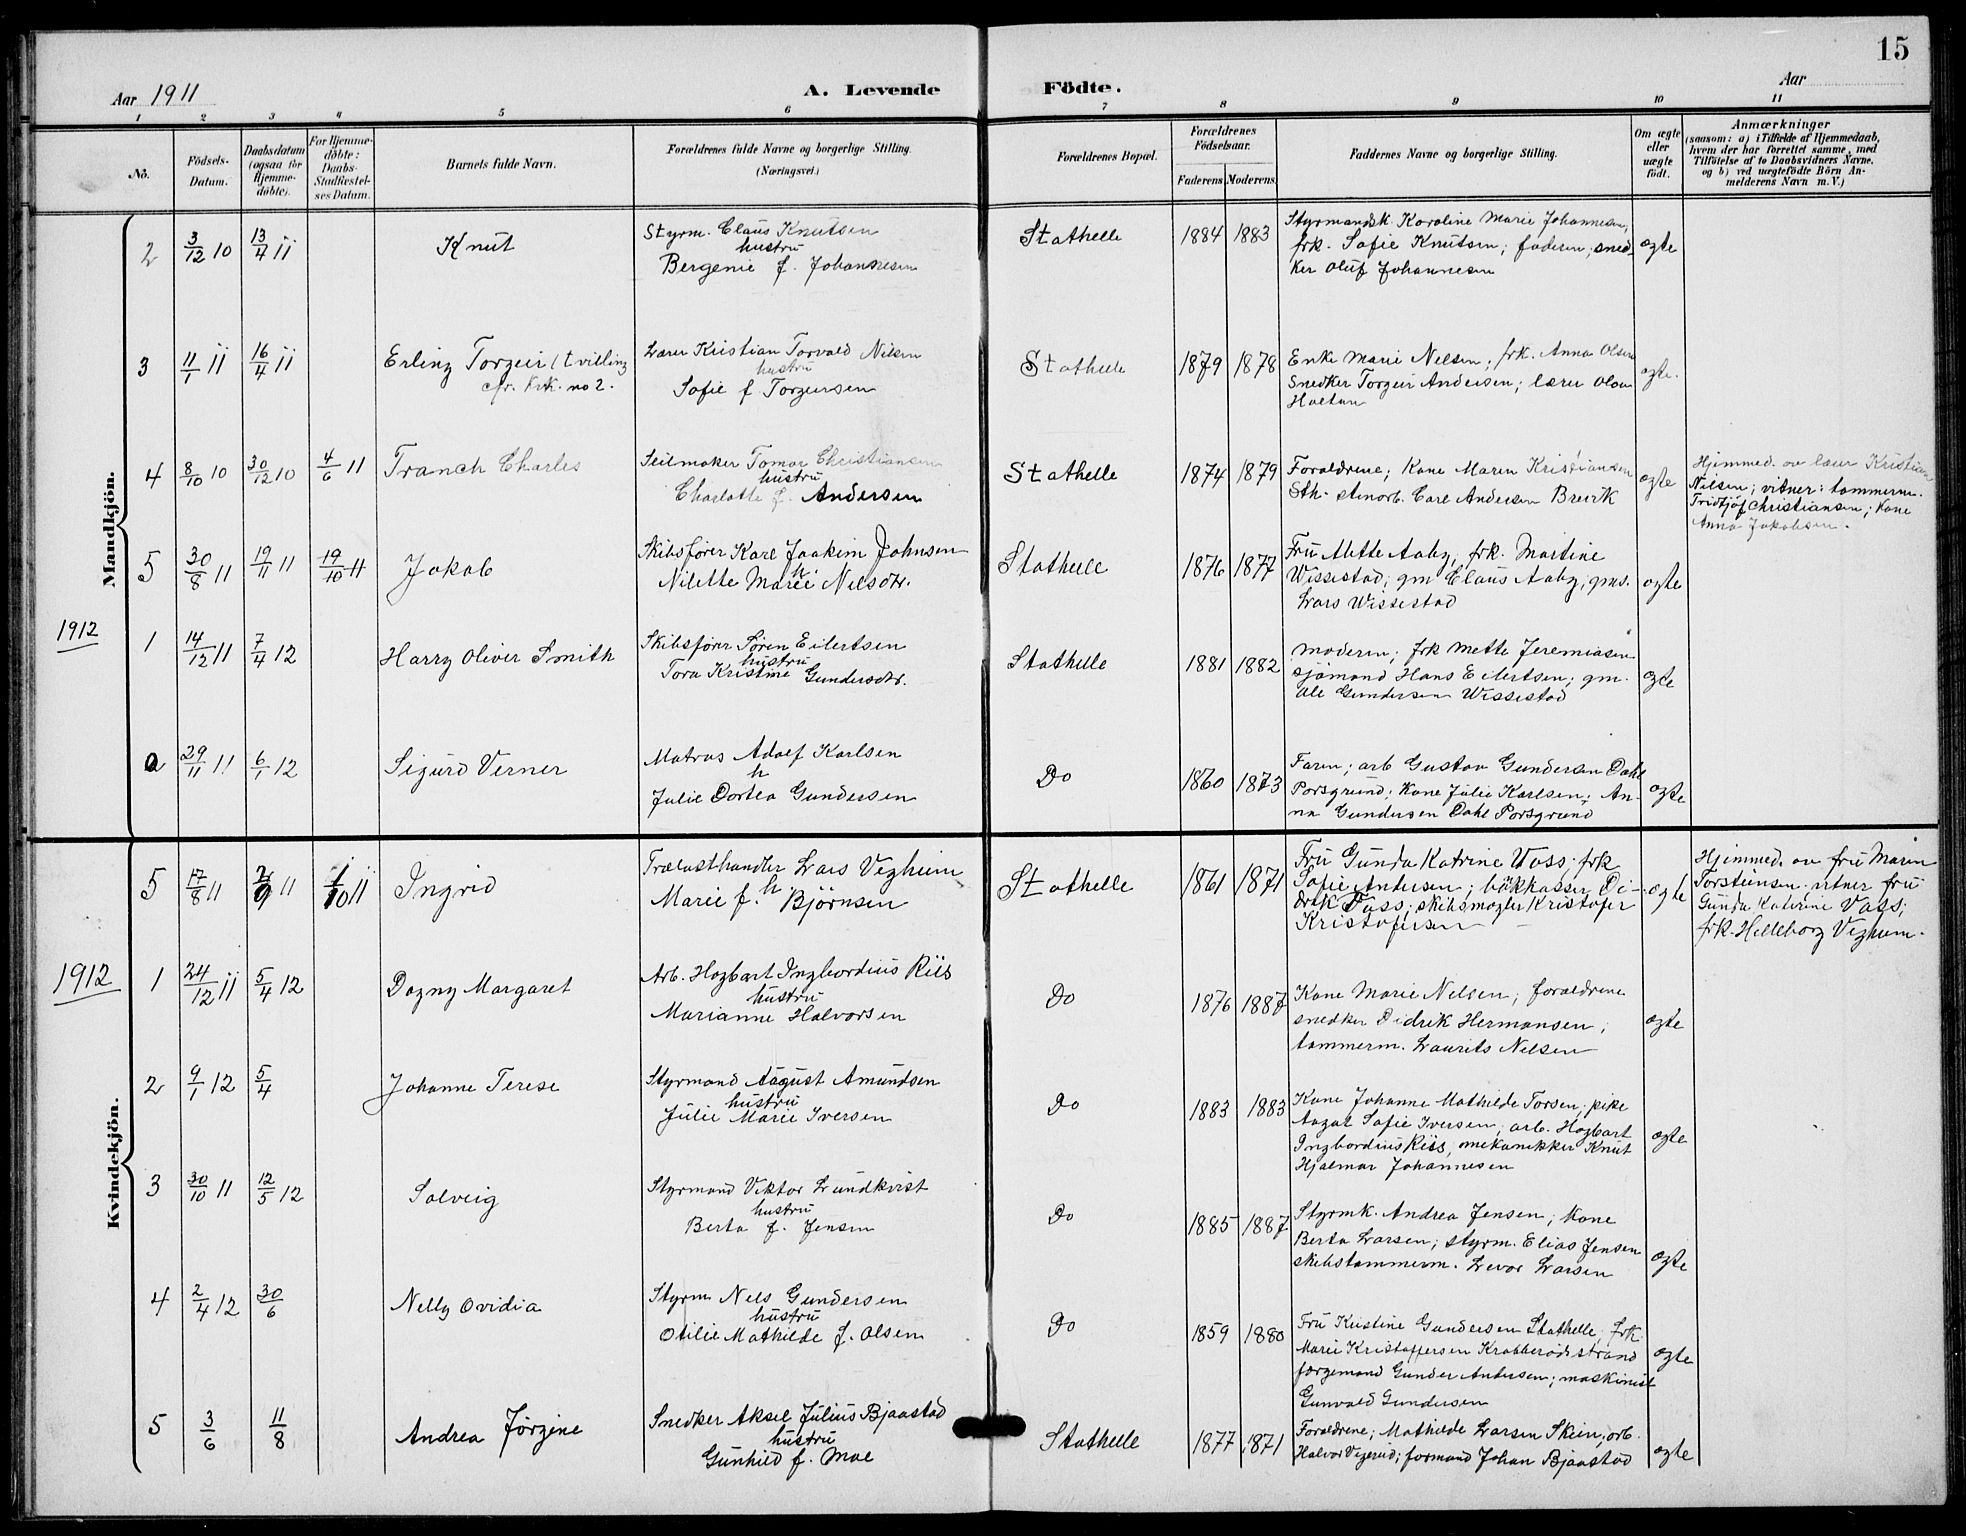 15
Aar 1911 A. Levende Födte. Aar
1 2 3 4 5 6 7 8 9 10 11
No.
Födsels-
Datum.
Daabsdatum
(ogsaa for
Hjemme-
döbte).
For Hjemme-
döbte:
Daabs-
Stadfæstel-
ses Datum.
Barnets fulde Navn.
Forældrenes fulde Navne og borgerlige Stilling.
(Næringsvei.)
Forældrenes Bopæl.
Forældrenes
Födselsaar.
Faderens. Moderens.
Faddernes Navne og borgerlige Stilling.
Om ægte
eller
uægte
født.
Anmærkninger
(saasom: a) i Tilfælde af Hjemmedaab,
hvem der har forrettet samme, med
Tilföielse af to Daabsvidners Navne,
og b) ved uægtefödte Börn An-
melderens Navn m. V.)
Mandkjön.
2 3/12 10 13/4 11 Knut
Styrm. Claus Knutsen
hustru
Bergenie f. Johannesen
Stathelle 1884 1883
Styrmandsk. Karoline Marie Johannesen,
frk. Sofie Knutsen; faderen; sned-
ker Oluf Johannesen
ægte
3 11/1 11 16/4 11 Erling Torgeir (tvilling
cfr. Kvk. no 2.
Lærer Kristian Torvald Nilsen
hustru
Sofie f Torgeirsen
Stathelle 1879 1878
Enke Marie Nelsen; frk. Anna Olsen
Snedker Torgeir Andersen; lærer Olav
Holtan
ægte.
4 8/10 10 30/12 10 4/6 11 Tranch Charles
Seilmaker Tomar Christiansen
hustru
Charlotte f. Andersen
Stathelle 1874 1879
Forældrene; Kone Maren Kristiansen
Sth. stenarb. Carl Andersen Brevik
ægte
Hjemmed. av lærer Kristian
Nilsen; vitner: tømmerm.
Fridtjöf Christiansen; Kone
Anna Jakobsen.
5 30/8 11 19/11 11 19/10 11 Jakob
Skibsfører Karl Joakim Johnsen
h.
Nilette Marie Nilsdtr.
Stathelle 1876 1877
Fru Mette Aaby, frk. Martine
Wissestad; gm Claus Aaby; gms.
Lars Wissestad
ægte
1912
1 14/12 11 7/4 12 Harry Oliver Smith
Skibsfører Søren Eilertsen
hustru
Tora Kristine Gundersdtr.
Stathelle 1881 1882
moderen; frk Mette Jeremiasen
sjömand Hans Eilertsen; gm.
Ole Gundersen Wissestad
ægte
2 29/11 11 6/1 12 Sigurd Verner
Matros Adolf Karlsen
h
Julie Dortea Gundersen
Do 1860 1873
Faren; arb Gustav Gundersen Dahl
Porsgrund; Kone Julie Karlsen; An-
na Gundersen Dahl Porsgrund
ægte
Kvindekjön.
5 17/8 11 11 1/10 11 Ingrid
Trælasthandler Lars Vegheim
h.
Marie f. Björnsen
Stathelle 1861 1871
Fru Gunda Katrine Vass; frk
Sofie Andersen; bykkasser Di-
drik Vass; skibsmægler Kristofer
Kristofersen
ægte
Hjemmed. av fru Maren
Torsteinsen. vitner fru
Gunda Katerine Vass;
frk. Helleborg Vegheim.
1912
1 24/12 11 5/4 12 Dagny Margaret
Arb. Hagbart Ingbordius Riis
hustru
Marianne Halvorsen
Do 1876 1887
Kone Marie Nelsen; forældrene
snedker Didrik Hermansen;
tømmerm. Laurits Nelsen
ægte
2 9/1 12 5/4 Johanne Terese
Styrmand August Amundsen
hustru
Julie Marie Iversen
Do 1883 1883
Kone Johanne Mathilde Torsen; pike
Aagot Sofie Iversen; arb. Hagbart
Ingbordius Riis, mekanikker Knut
Hjalmar Johannesen
ægte
3 30/10 11 12/5 12 Solveig
Styrmand Viktor Lundkvist
hustru
Berta f. Jensen
Do 1885 1887
Styrmk. Andrea Jensen; Kone
Berta Larsen; styrm. Elias Jensen
skibstømmerm. Levor Larsen
ægte
4 2/4 12 30/6 Nelly Ovidia
Styrm Nels Gundersen
hustru
Otilie Mathilde f. Olsen
Do 1859 1880
Fru Kristine Gundersen Stathelle; frk.
Marie Kristoffersen Krabberødstrand
færgemand Gunder Andersen; maskinist
Gunvald Gundersen
ægte
5 3/6 11/8 Andrea Jørgine
Snedker Aksel Julius Bjaastad
hustru
Gunhild f. Moe
Stathelle 1877 1871
Forældrene; Mathilde Larsen Skien; arb.
Halvor Vegerud; formand Johan Bjaastad
ægte